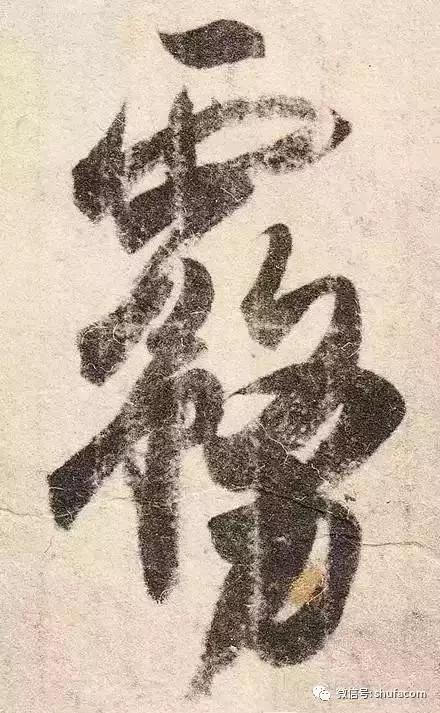 霧
微信号: shufacom